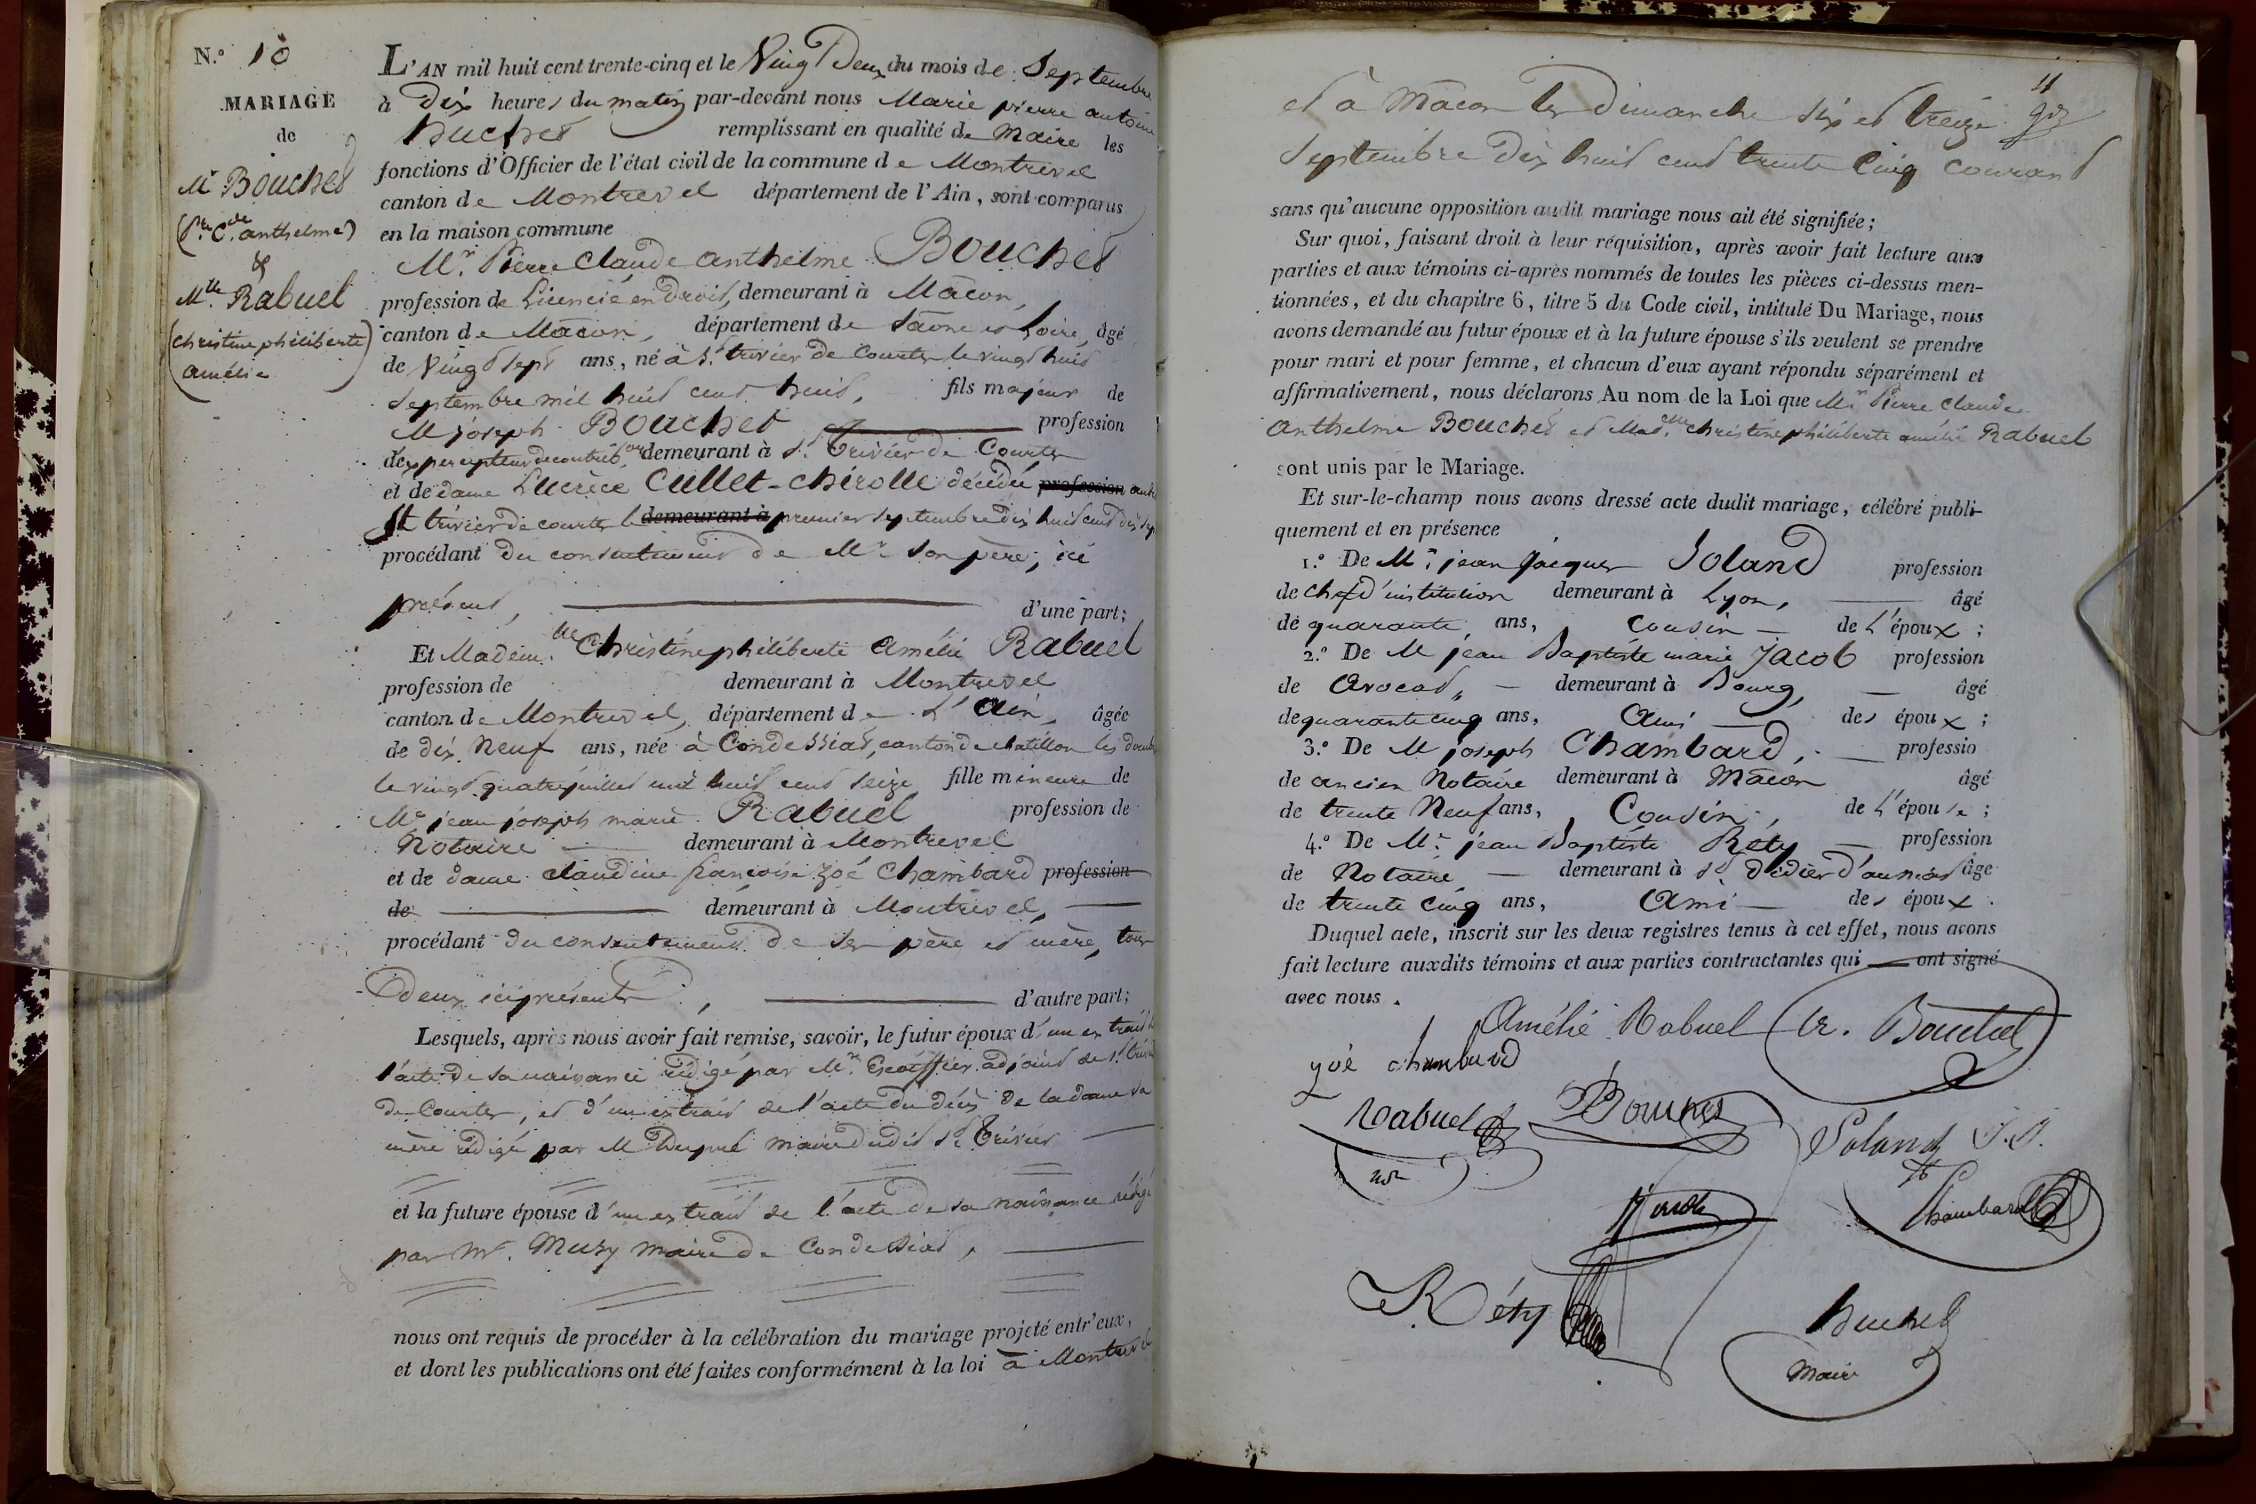 N.° 10
MARIAGE
de
Mr Bouchet
(Pre Cde anthelme)
&
Mlle Rabuel
(christine philiberte
amélie)
L'AN mil huit cent trente-cinq et le Vingt Deux du mois de Septembre
à Dix heures du matin par-devant nous Marie pierre antoine
Buchet remplissant en qualité de Maire les
fonctions d'Officier de l'état civil de la commune de Montrevel
canton de Montrevel département de l'Ain, sont comparus
en la maison commune
Mr. Pierre Claude anthelme Bouchet
profession de Licencié en Droit, demeurant à Mâcon,
canton de Mâcon, département de Saône et Loire, âgé
de Vingt sept ans, né à St. trivier de Courtes le vingt huit
Septembre mil huit cent huit, fils majeur de
M joseph Bouchet profession
d'ex percepteur de contrib.ons demeurant à St. Trivier de Courtes
et de dame Lucrèce Cullet-Chirolle décédée profession audit
St trivier de courtes le demeurant à premier septembre dix huit cent dix sept
procédant du consentement de Mr son père, ici
présent, d'une part;
Et Madem.lle Christine philiberte Amélie Rabuel
profession de demeurant à Montrevel
canton de Montrevel, département de L'Ain, âgée
de dix Neuf ans, née à Condessiat, canton de chatillon les dombes
le vingt quatre juillet mil huit cent seize fille mineure de
Mr jean joseph marie Rabuel profession de
Notaire demeurant à Montrevel
et de dame claudine françoise zoé Chambard profession
de demeurant à Montrevel,
procédant du consentement de ses père et mère, tous
Deux ici présents, d'autre part;
Lesquels, après nous avoir fait remise, savoir, le futur époux d'un extrait de
l'acte de sa naissance rédigé par Mr. Escoffier adjoint de St. trivier
de Courtes, et d'un extrait de l'acte du décès de la dame sa
mère rédigé par M Dupré maire dudit St Trivier
et la future épouse d'un extrait de l'acte de sa naissance rédigé
par Mr. Muzy maire de Condessiat,
nous ont requis de procéder à la célébration du mariage projeté entr'eux,
et dont les publications ont été faites conformément à la loi à Montrevel
11
et à Mâcon les Dimanche six et treize
Septembre Dix huit cent trente Cinq courant
sans qu'aucune opposition audit mariage nous ait été signifiée;
Sur quoi, faisant droit à leur réquisition, après avoir fait lecture aux
parties et aux témoins ci-après nommés de toutes les pièces ci-dessus men-
tionnées, et du chapitre 6, titre 5 du Code civil, intitulé Du Mariage, nous
avons demandé au futur époux et à la future épouse s'ils veulent se prendre
pour mari et pour femme, et chacun d'eux ayant répondu séparément et
affirmativement, nous déclarons Au nom de la Loi que Mr Pierre Claude
Anthelme Bouchet et Mad.elle christine philiberte amélie Rabuel
sont unis par le Mariage.
Et sur-le-champ nous avons dressé acte dudit mariage, célébré publi-
quement et en présence
1.° De Mr. jean Jacques Soland profession
de chef d'institution demeurant à Lyon, âgé
de quarante ans, Cousin de L'époux;
2.° De M jean Baptiste marie Jacob profession
de Avocat, demeurant à Bourg, âgé
de quarante cinq ans, Ami des époux;
3.° De M joseph Chambard, professio
de ancien Notaire demeurant à Mâcon âgé
de trente Neuf ans, Cousin, de L'épouse;
4.° De Mr jean Baptiste Réty profession
de Notaire demeurant à St didier d'aussiat âge
de trente cinq ans, Ami des époux.
Duquel acte, inscrit sur les deux registres tenus à cet effet, nous avons
fait lecture auxdits témoins et aux parties contractantes qui ont signé
avec nous.
Amélie Rabuel Cr. Bouchet
zoé chambard
Rabuel Bouchet
Soland J. J.
nre
Jacob Chambard
Réty
Buchet
Maire